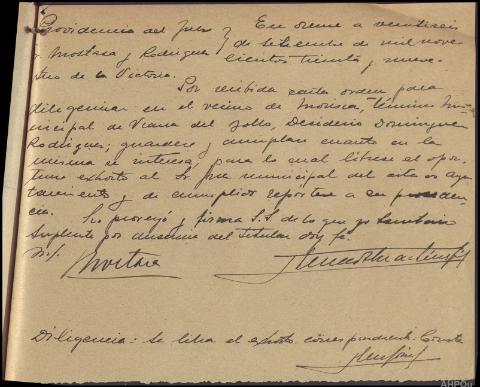 Providencia del Juez } En Orense a veintiseis
Sr. Mostaza y Rodriguez } de Setiembre de mil nove
cientos treinta y nueve
Año de la Victoria.
Por recibida carta orden para
diligenciar en el vecino de Morisca, término mu
nicipal de Viana del Bollo, Desiderio Dominguez
Rodriguez; guardese y cumplase cuanto en la
misma se interesa, para lo cual librese el opor
tuno exhorto al Sr. Juez municipal del
tamiento y de cumplido reportese a su proceden
cia.
Lo proveyó y firma S.S. de lo que yo Secretario
Suplente por ausencia del titular doy fé.
Mostaza
Diligencia: Se libra el exhorto correspondiente: Conste
AHPOu